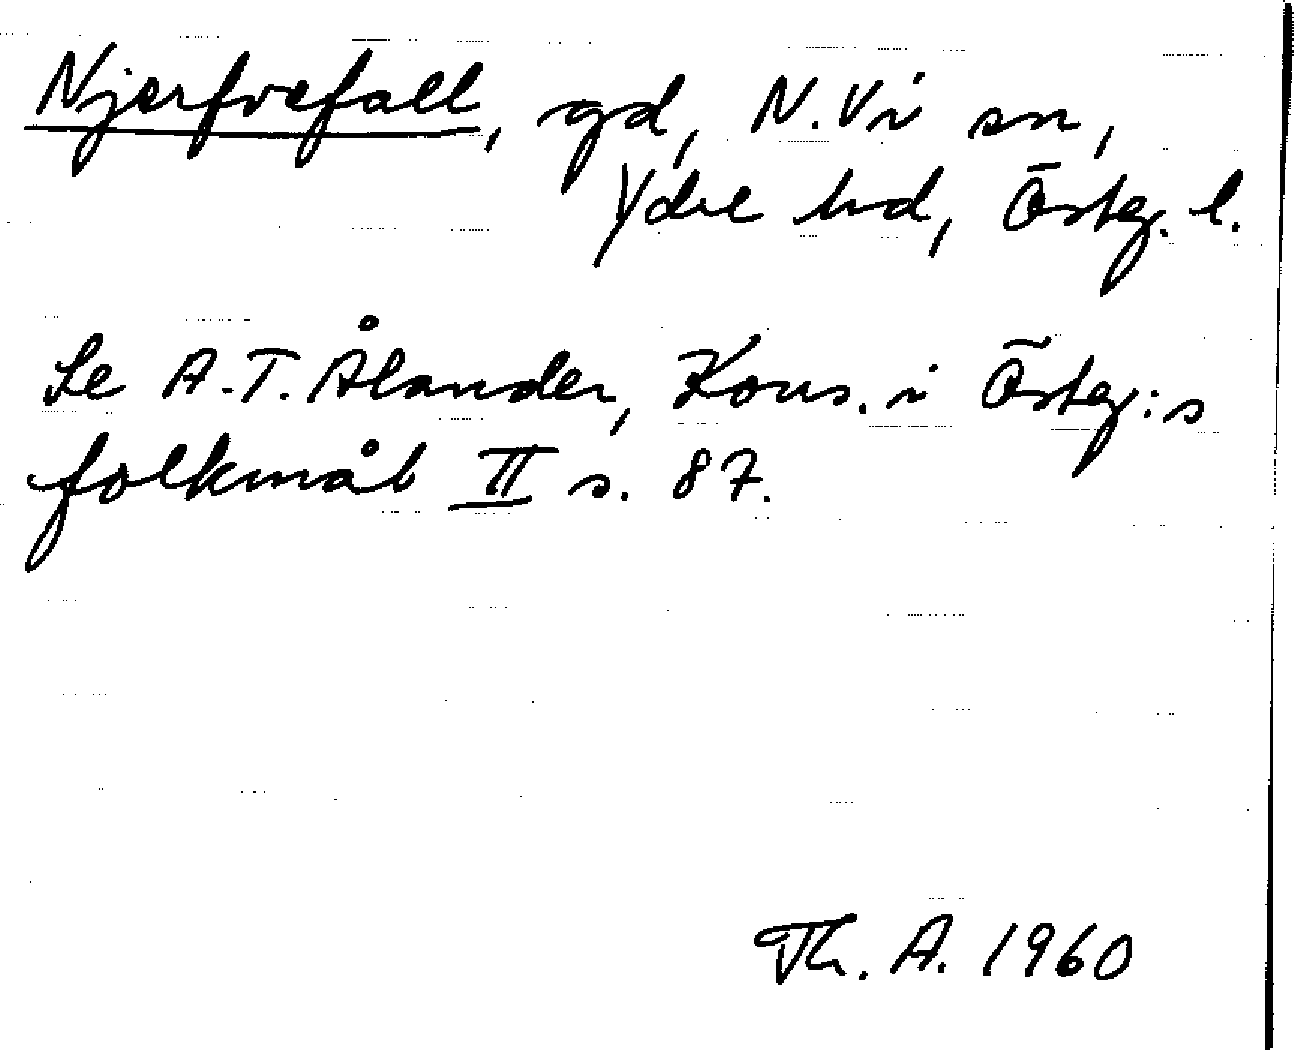 Njerfvefall, gd, N. Vi sn,
Ydre hd, Östg. l.
Se A.T. Ålander, Kons. i Östg:s
folkmål II s. 87.
Th. A. 1960